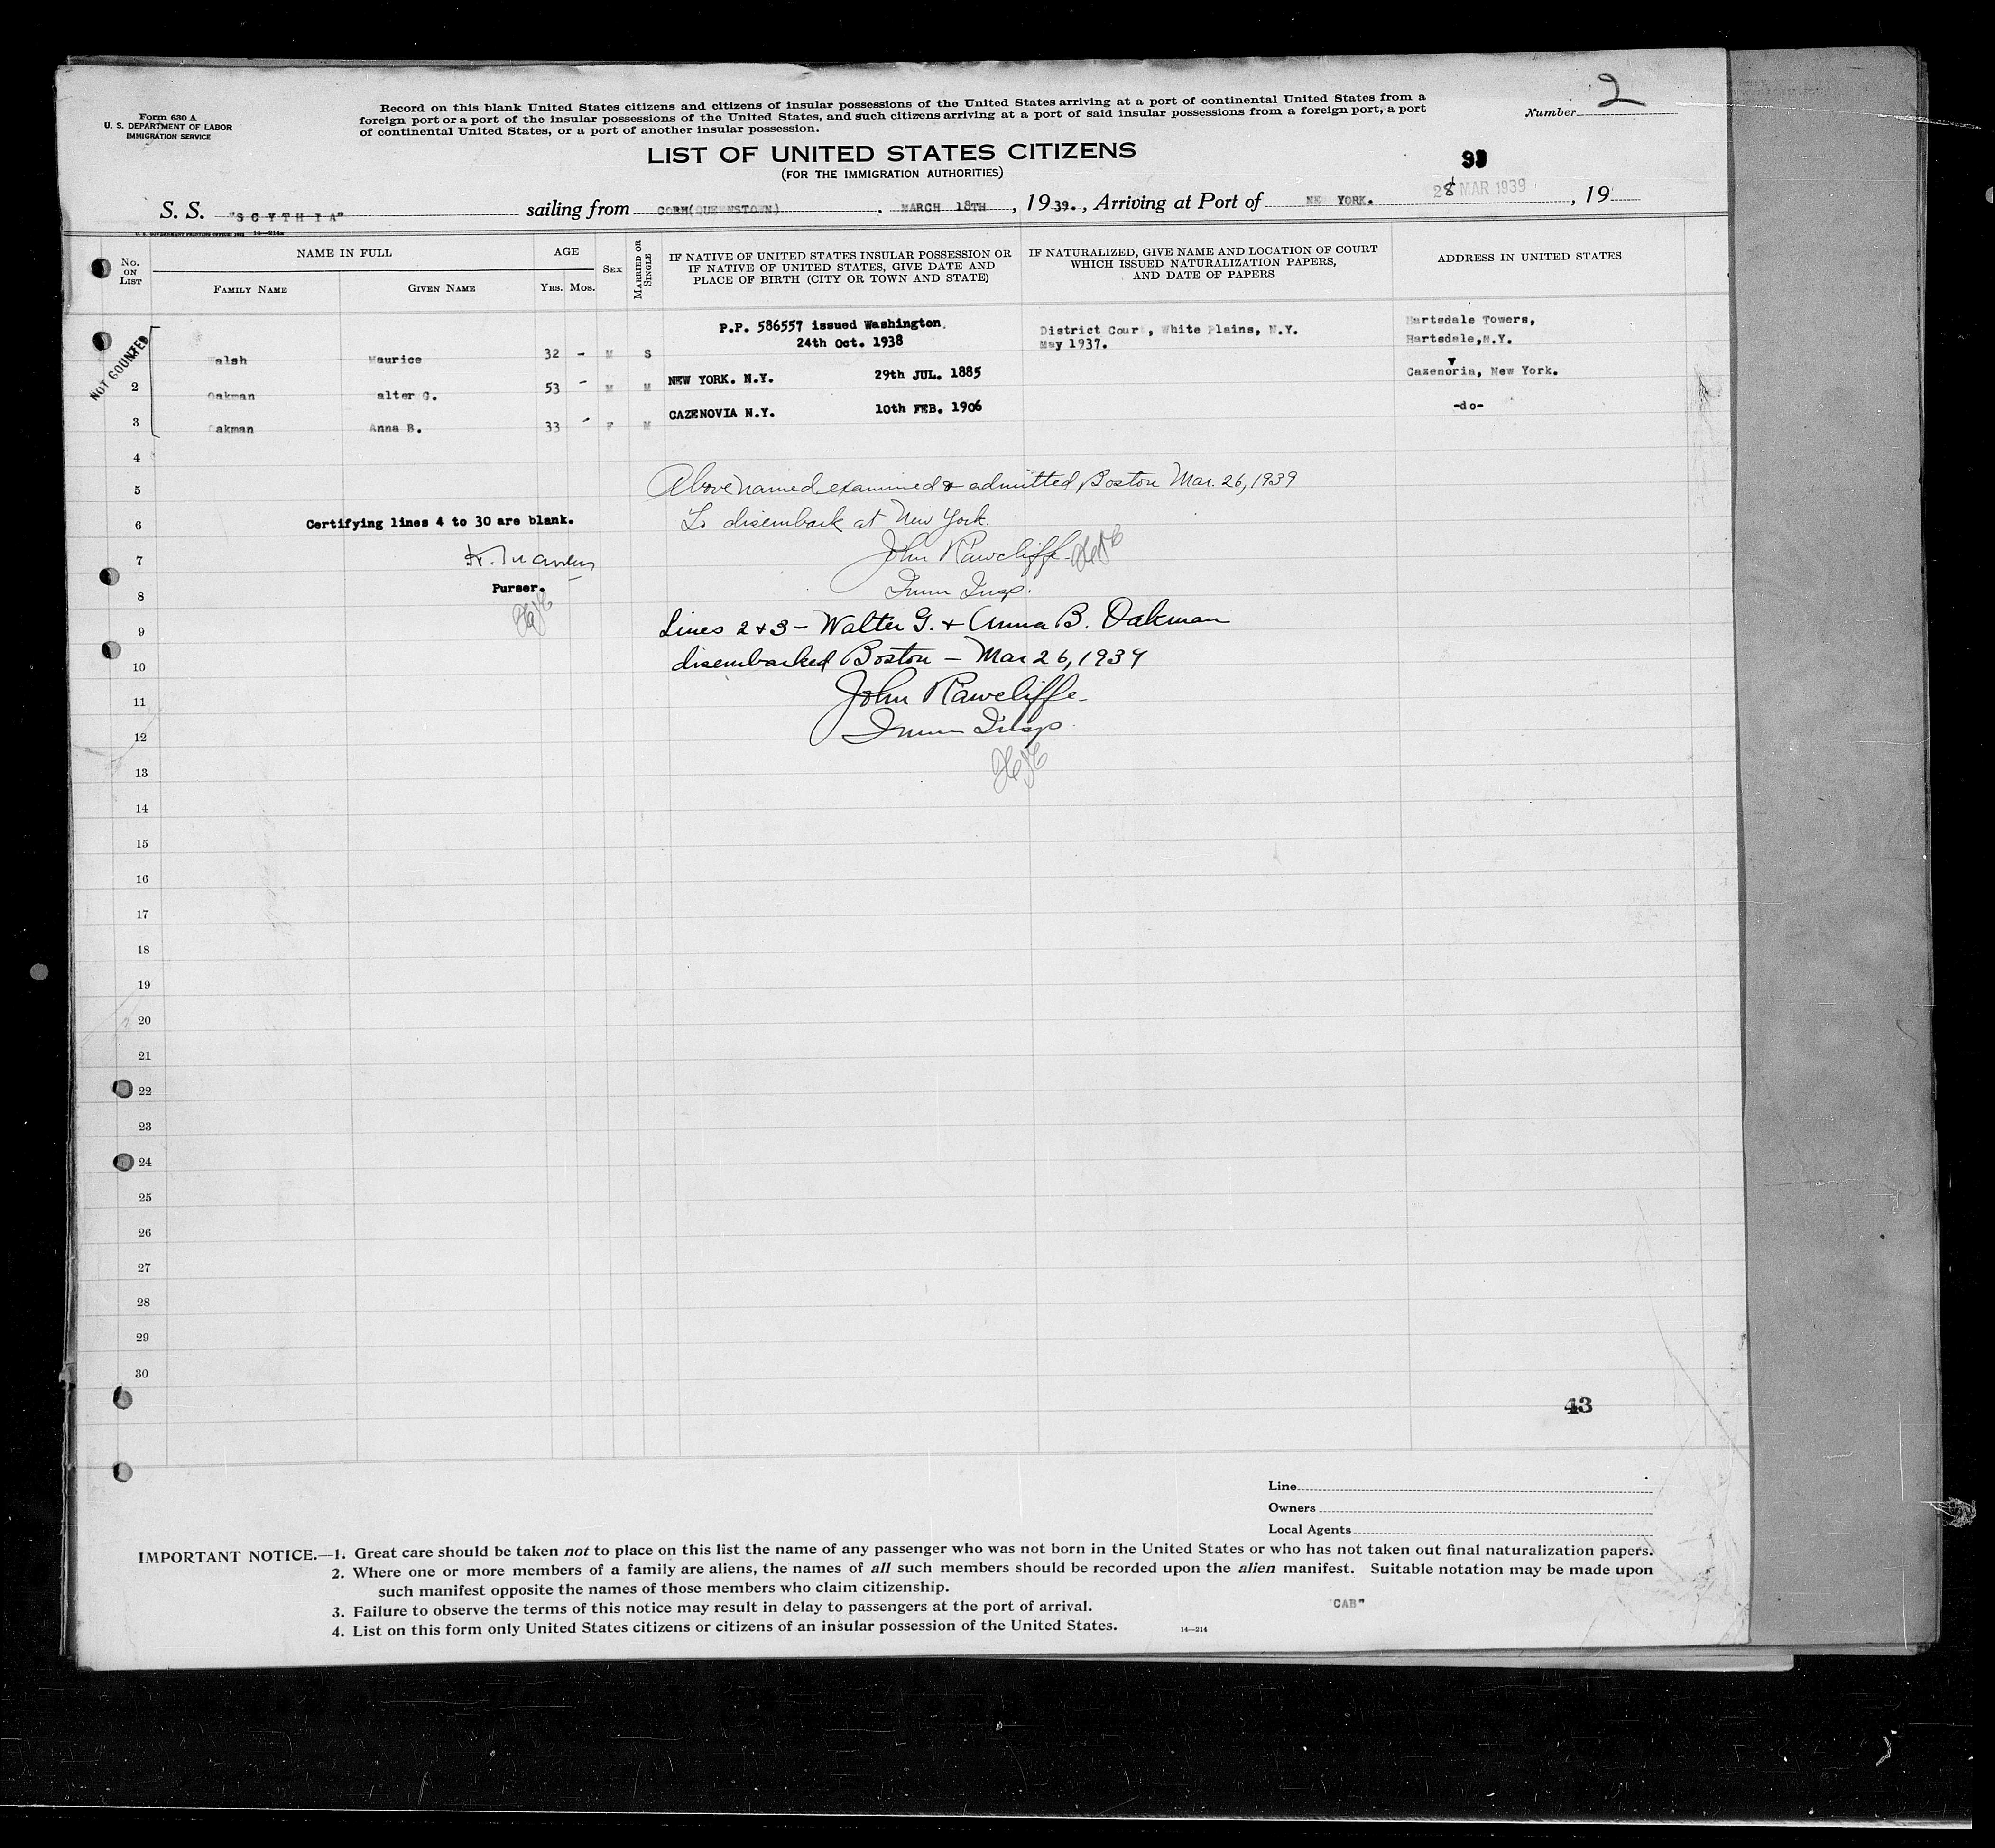 Form 630 A
U. S. DEPARTMENT OF LABOR
IMMIGRATION SERVICE
Record on this blank United States citizens and citizens of insular possessions of the United States arriving at a port of continental United States from a
foreign port or a port of the insular possessions of the United States, and such citizens arriving at a port of said insular possessions from a foreign port, a port
of continental United States, or a port of another insular possession.
Number 2
LIST OF UNITED STATES CITIZENS
(FOR THE IMMIGRATION AUTHORITIES)
S. S. "SCYTHIA" sailing from COBH(QUEENSTOWN) . MARCH 18TH , 1939. , Arriving at Port of NEW YORK. 28 MAR 1939 , 19
14—214a
No. ON LIST
NAME IN FULL
FAMILY NAME
GIVEN NAME
AGE
YRS. MOS.
SEX
MARRIED OR SINGLE
IF NATIVE OF UNITED STATES INSULAR POSSESSION OR
IF NATIVE OF UNITED STATES, GIVE DATE AND
PLACE OF BIRTH (CITY OR TOWN AND STATE)
IF NATURALIZED, GIVE NAME AND LOCATION OF COURT
WHICH ISSUED NATURALIZATION PAPERS,
AND DATE OF PAPERS
ADDRESS IN UNITED STATES
NOT COUNTED
P.P. 586557 issued Washington, District Court, White Plains, N.Y. Hartsdale Towers,
24th Oct. 1938 May 1937. Hartsdale,N.Y.
Walsh Maurice 32 - M S
v
NEW YORK. N.Y. 29th JUL. 1885 Cazenoria, New York.
2 Oakman Walter G. 53 - M M
CAZENOVIA N.Y. 10th FEB. 1906 -do-
3 Oakman Anna B. 33 - F M
4
5 Above named examined & admitted, Boston Mar. 26, 1939
6 Certifying lines 4 to 30 are blank. To disembark at New York.
7 John Rawcliffe
8 Purser. Imm Insp.
9 Lines 2 & 3 - Walter G. & Anna B. Oakman
10 disembarked Boston - Mar 26, 1939
11 John Rawcliffe
12 Imm Insp.
13
14
15
16
17
18
19
20
21
22
23
24
25
26
27
28
29
30
43
Line
Owners
Local Agents
IMPORTANT NOTICE.—1. Great care should be taken not to place on this list the name of any passenger who was not born in the United States or who has not taken out final naturalization papers.
2. Where one or more members of a family are aliens, the names of all such members should be recorded upon the alien manifest. Suitable notation may be made upon
such manifest opposite the names of those members who claim citizenship.
3. Failure to observe the terms of this notice may result in delay to passengers at the port of arrival.
"CAB"
4. List on this form only United States citizens or citizens of an insular possession of the United States.
14—214